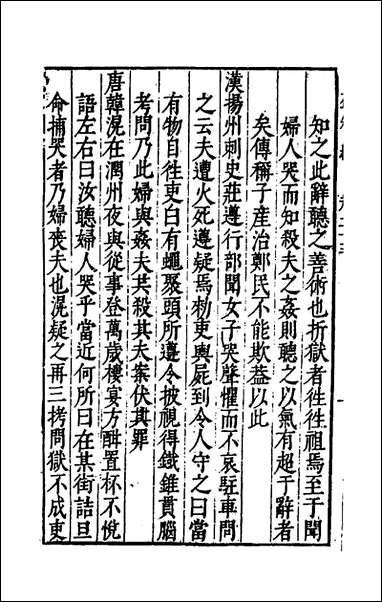 知之此辭聽之善術也折獄者徃徃祖焉至于聞
婦人哭而知殺夫之姦則聽之以氣有超于辭者
矣傳稱子産治鄭民不能欺葢以此
漢揚州刺史莊遵行部聞女子哭聲懼而不哀駐車問
之云夫遭火死遵疑焉勑吏輿屍到令人守之曰當
有物自徃吏白有蠅聚頭所遵令披視得鐵錐貫腦
考問乃此婦與姦夫共殺其夫案伏其罪
唐韓滉在潤州夜與從事登萬歲樓宴方酣置杯不悅
語左右曰汝聽婦人哭乎當近何所曰在某街詰旦
命捕哭者乃婦喪夫也滉疑之再三拷問獄不成吏